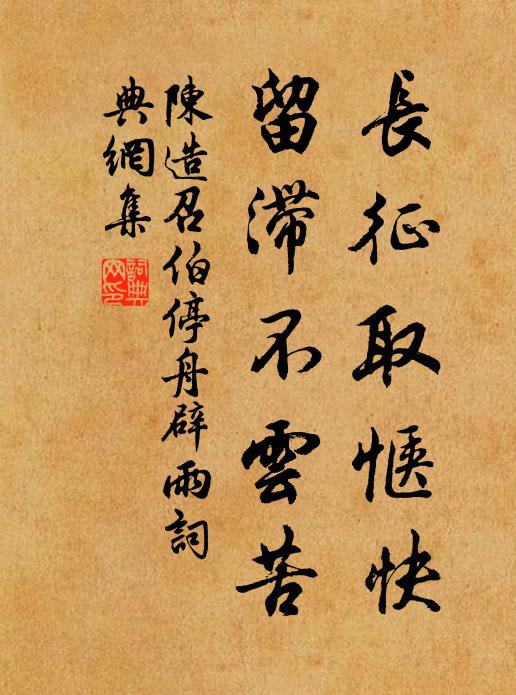 長征取愜快
留滯不雲苦
陳造召伯停舟辟雨詞
典網集
詞典
网印